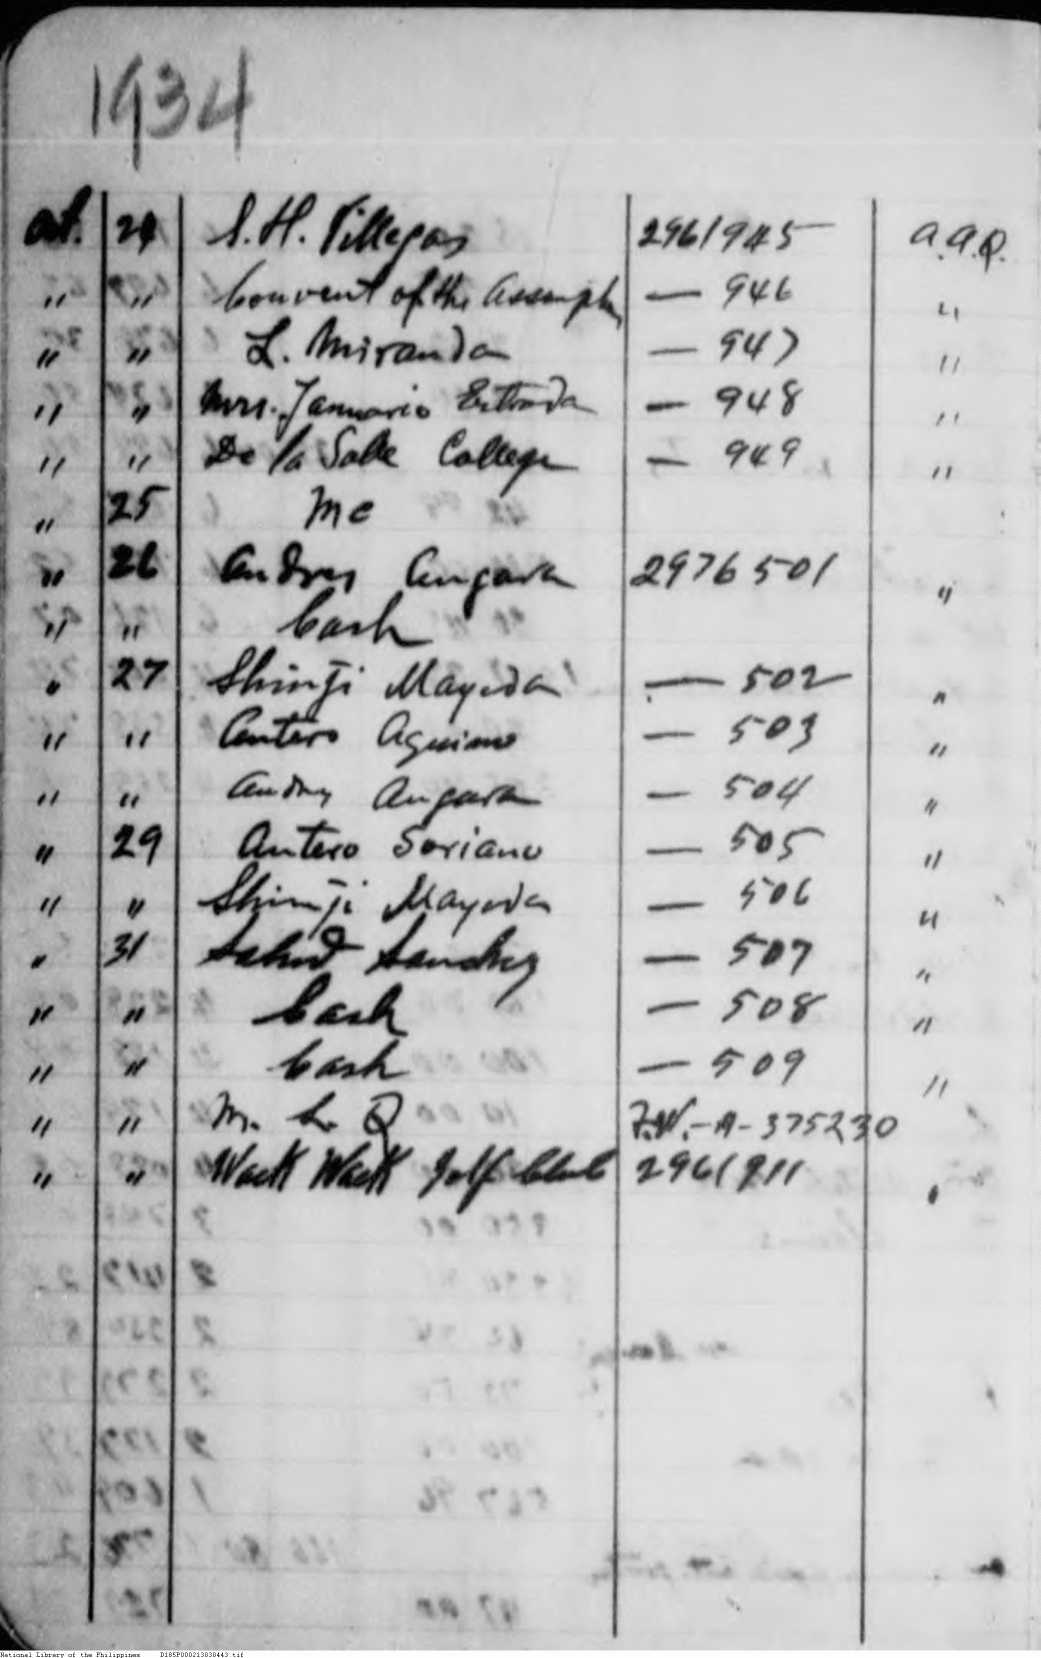 1934
Oct. 24 S. H. Villegas 2961945 A.A.Q.
" " Convent of the Assumption — 946 "
" " L. Miranda — 947 "
" " Mrs. Januario Estrada — 948 "
" " De la Salle College — 949 "
" 25 Me
" 26 Andres Angara 2976501 "
" " Cash
" 27 Shinji Mayeda — 502 "
" " Antero Aquino — 503 "
" " Andres Angara — 504 "
" 29 Antero Soriano — 505 "
" " Shinji Mayeda — 506 "
" 31 Sanchez — 507 "
" " Cash — 508 "
" " Cash — 509 "
" " M. L. Q 7.W.-A-375230
" " Wack Wack Golf Club 2961911 "
National Library of the Philippines D185P000213838443.tif